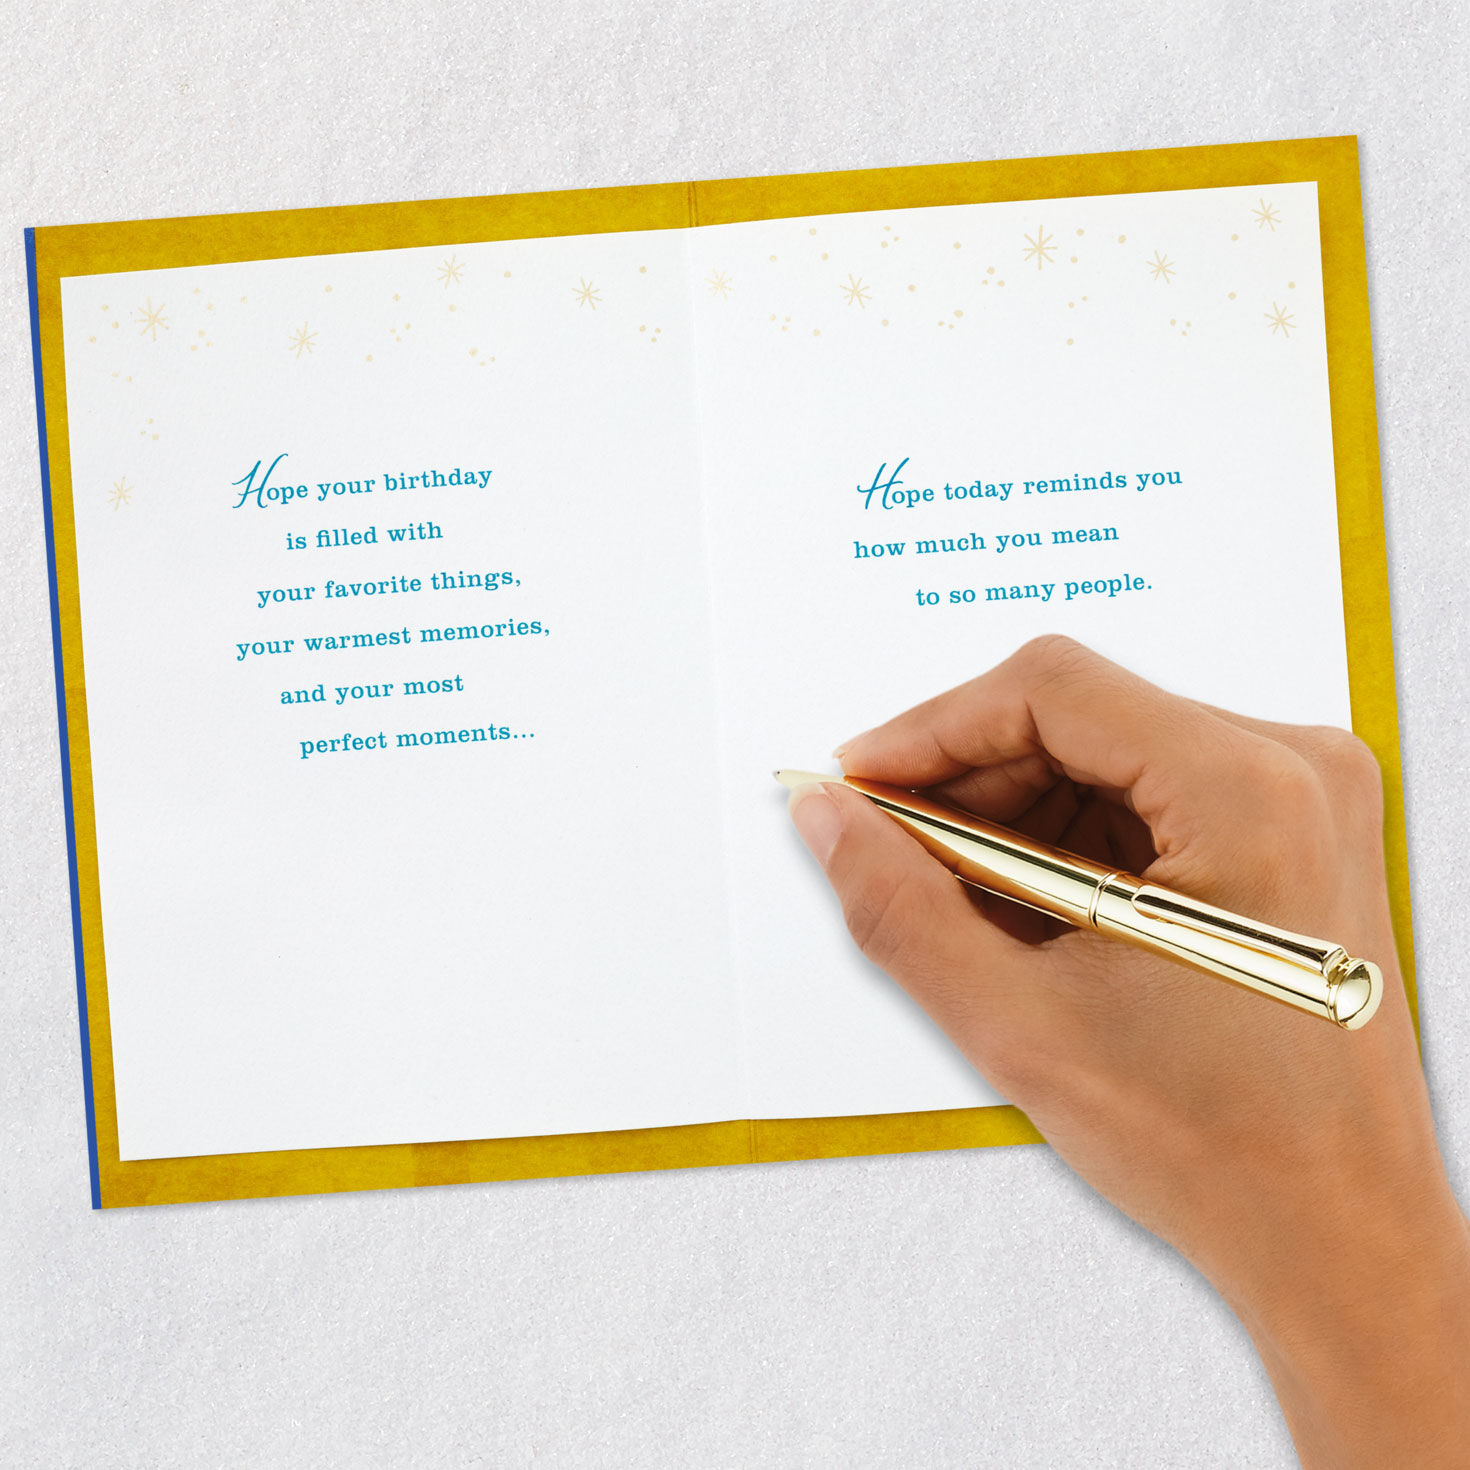 Hope your birthday
is filled with
your favorite things,
your warmest memories,
and your most
perfect moments...
Hope today reminds you
how much you mean
to so many people.